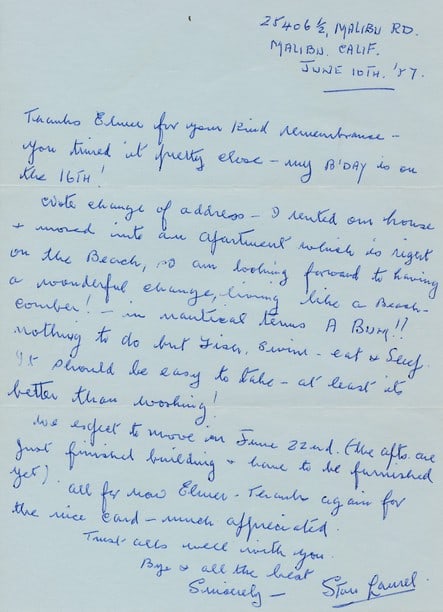 25406½, MALIBU RD.
MALIBU. CALIF.
JUNE 10TH. '57.
Thanks Elmer for your kind remembrance -
you timed it pretty close - my B'DAY is on
the 16TH!
Note change of address - I rented our house
& moved into an apartment which is right
on the Beach, so am looking forward to having
a wonderful change, living like a Beach-
comber! - in nautical terms A BUM!!
nothing to do but Fish, Swim - eat & Sleep.
It should be easy to take - at least its
better than working!
We expect to move in June 22nd. (the apts. are
Just finished building & have to be furnished
yet). All for now Elmer - Thanks again for
the nice card - much appreciated.
Trust alls well with you.
Bye & all the best
Sincerely - Stan Laurel.